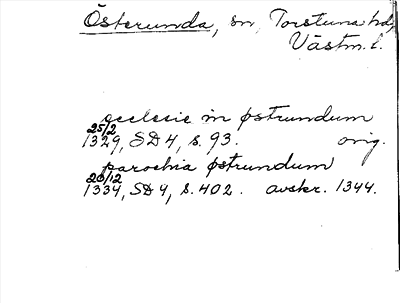 Österunda, sn, Torstuna hd,
Västm. l.
ecclesie in østrundum
25/2
1329, SD 4, s. 93. orig.
parochia østrundum
20/12
1334, SD 4, s. 402. avskr. 1344.